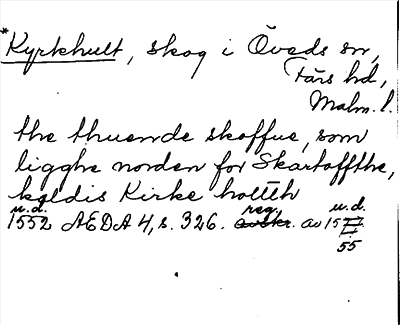 *Kyrkhult, skog i Öveds sn,
Färs hd,
Malm. l.
the thuende skoffue, som
ligghe norden for Skartoffthe,
kaldis Kirke holtth
u.d. reg. u.d.
1552 AEDA 4, s. 326. avskr. av 15
55